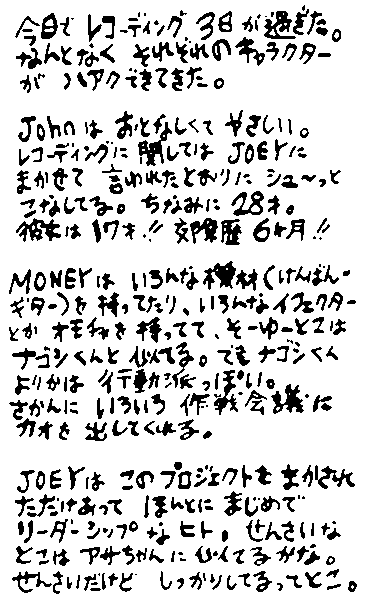 今日で レコーディング 3日が過ぎた。
なんとなく それぞれの キャラクター
が ハアクできてきた。
Johnは おとなしくて やさしい。
レコーディングに 関しては JOEYに
まかせて 言われたとおりに シュ〜っと
こなしてる。ちなみに 28才。
彼女は 17才!! 交際歴 6ヶ月!!
MONEYは いろんな機材(けんばん・
ギター)を 持ってたり、いろんなイフェクター
とか オモチャを 持ってて、そーゆーとこは
ナゴシくんと 似てる。でも ナゴシくん
よりかは 行動派っぽい。
さかんに いろいろ 作戦会議に
カオを 出してくれる。
JOEYは このプロジェクトを まかされ
ただけあって ほんとに まじめで
リーダーシップなヒト。せんさいな
とこは アサちゃんに 似てるかな。
せんさいだけど しっかりしてるってとこ。